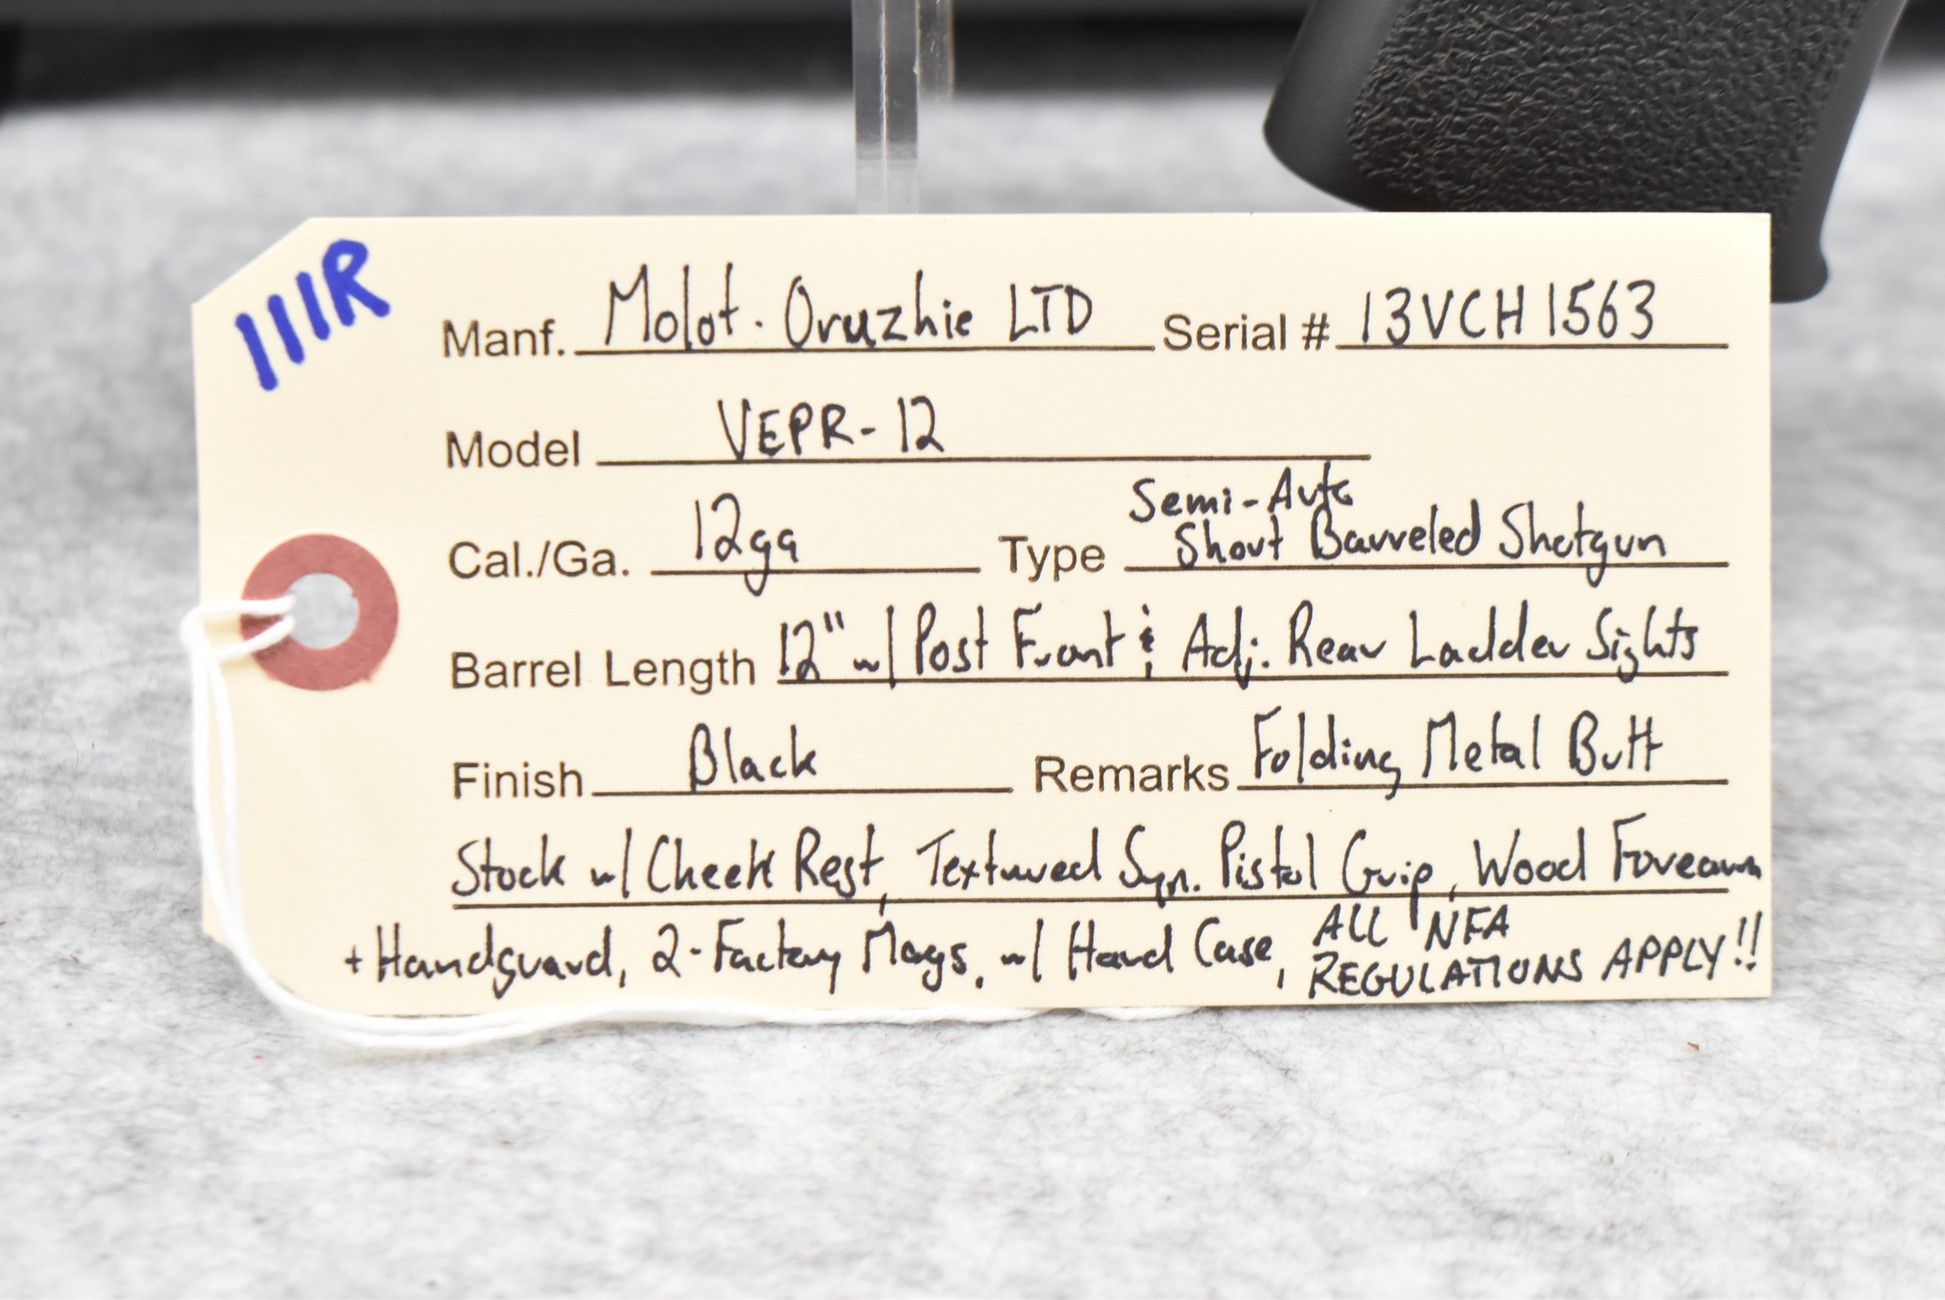 111R
Manf. Molot. Oruzhie LTD Serial # 13VCH1563
Model VEPR-12
Cal./Ga. 12ga Type Semi-Auto
Short Barreled Shotgun
Barrel Length 12" w/ Post Front & Adj. Rear Ladder Sights
Finish Black Remarks Folding Metal Butt
Stock w/ Cheek Rest, Textured Syn. Pistol Grip, Wood Forearm
+ Handguard, 2-Factory Mags. w/ Hard Case, ALL NFA
REGULATIONS APPLY!!